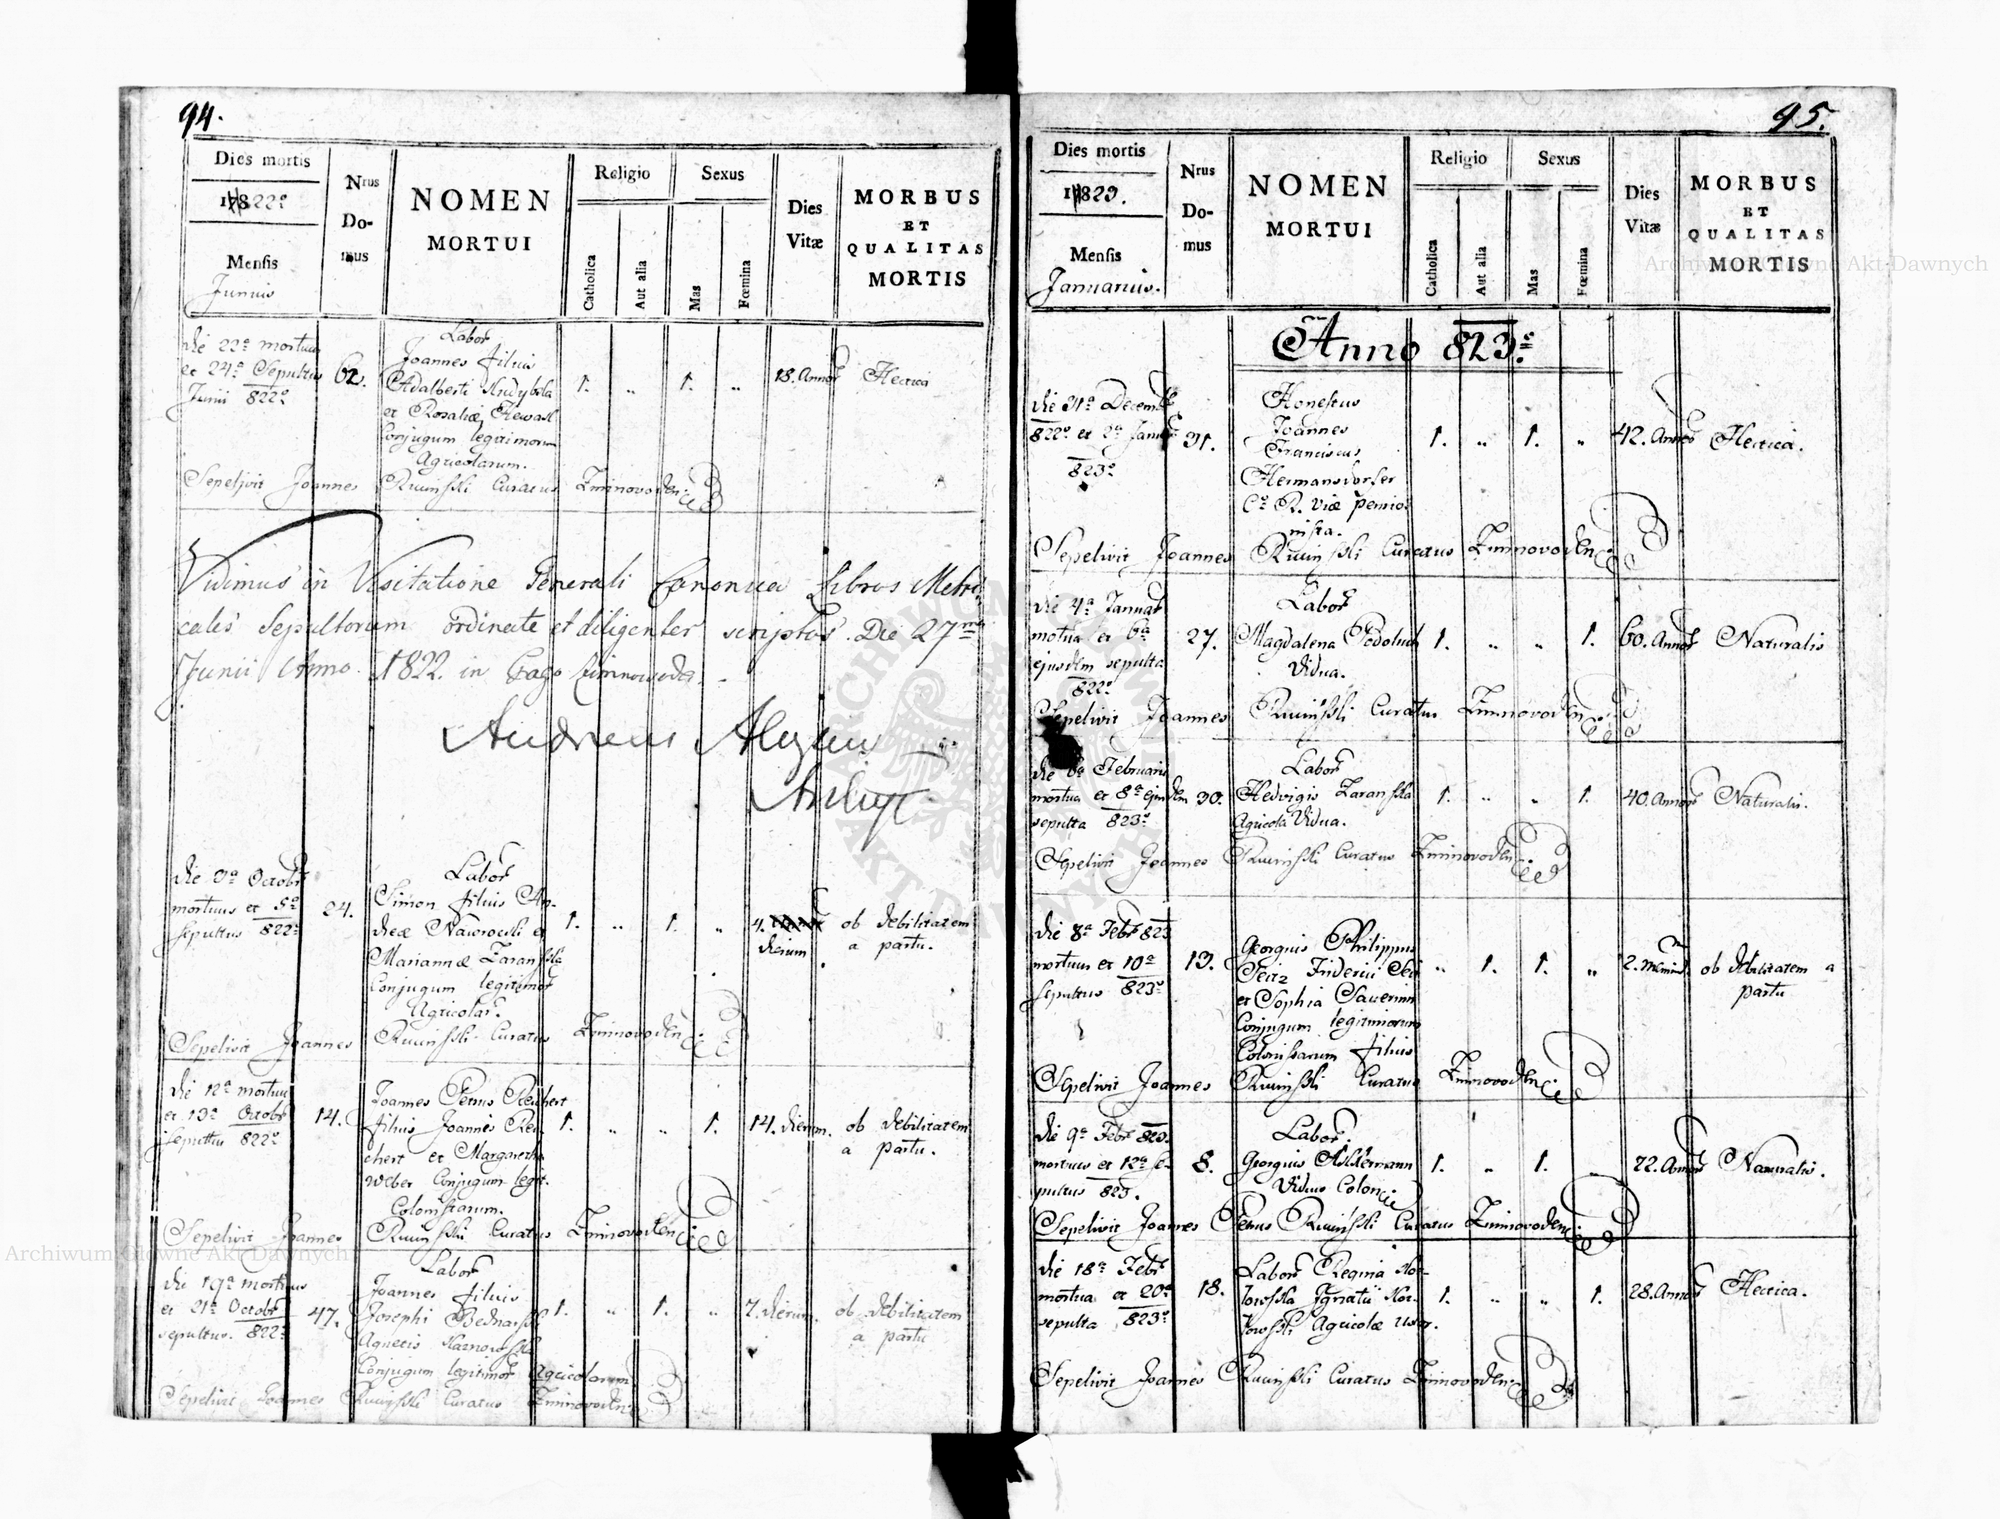 94.
Dies mortis
Nrus Domus
NOMEN MORTUI
Religio
Catholica
Aut alia
Sexus
Mas
Fœmina
Dies Vitæ
MORBUS ET QUALITAS MORTIS
1822º
Mensis
Junius
Die 22ª mortuus
et 24ª Sepultus
Junii 822º
62.
Labor
Joannes filius
Adalberti
et Rosaliæ
Conjugum legitimorum
Agricolarum.
1. „ 1. „
18. Annor
Hectica
Sepelivit Joannes Ruciński Curatus Zimnovoden:
Vidimus in Visitatione Generali Canonica Libros Metri
cales Sepultorum ordinate et diligenter scriptos. Die 27ma
Junii Anno 1822. in Pago Zimnowoda.
Andreas
Die 3ª Octobr
mortuus et 5ª
sepultus 822º
24.
Labor
Simon filius An-
dreæ Nawrocki et
Mariannæ Zarańska
Conjugum legitimor
Agricolar.
1. „ 1. „
4.
dierum
ob debilitatem
a partu.
Sepelivit Joannes Ruciński Curatus Zimnovoden:
Die 12ª mortuus
et 13ª Octobr
sepultus 822º
14.
Joannes Petrus Reichert
filius Joannis Rei-
chert et Margaretha
Weber Conjugum legit.
Colonistarum.
1. „ „ 1.
14. dierum.
ob debilitatem
a partu.
Sepelivit Joannes Ruciński Curatus Zimnovoden:
Die 19ª mortuus
et 21ª Octobr
sepultus. 822º
47.
Labor
Joannes filius
Josephi Bednarski
Agnetis
Conjugum legitimor Agricolarum
1. „ 1. „
7. dierum.
ob debilitatem
a partu
Sepelivit Joannes Ruciński Curatus Zimnovoden:
95.
Dies mortis
Nrus Domus
NOMEN MORTUI
Religio
Catholica
Aut alia
Sexus
Mas
Fœmina
Dies Vitæ
MORBUS ET QUALITAS MORTIS
1823.
Mensis
Januarius.
Anno 823º
Die 31ª Decemb
822º et 2ª Januar
823º
31.
Honestus
Joannes
Franciscus
Hermansdorfer
1. „ 1. „
42. Annor
Hectica.
Sepelivit Joannes Ruciński Curatus Zimnovoden:
Die 4ª Januar
mortua et 6ª
ejusdem sepulta
822º
27.
Labor
Magdalena
Vidua.
1. „ „ 1.
60. Annor
Naturalis
Sepelivit Joannes Ruciński Curatus Zimnovoden:
Die 6ª Februarii
mortua et 8ª ejusdem
sepulta 823º
30.
Labor
Hedvigis Zarańska
Agricola Vidua.
1. „ „ 1.
40. Annor
Naturalis.
Sepelivit Joannes Ruciński Curatus Zimnovoden:
Die 8ª Febr 823
mortuus et 10ª
sepultus 823º
13.
Georgius Philippus
Seitz Friderici Sei
et Sophia
Conjugum legitimorum
Colonistarum filius
„ 1. 1. „
ob debilitatem a
partu
Sepelivit Joannes Ruciński Curatus Zimnovoden:
Die 9ª Febr 823.
mortuus et 12ª se-
pultus 823.
8.
Labor.
Georgius
Viduus Colon:
1. „ 1. „
72. Annor
Naturalis.
Sepelivit Joannes Petrus Ruciński Curatus Zimnovoden:
Die 18ª Febr
mortua et 20ª
sepulta 823º
18.
Labor Regina
Ignatii
Agricolæ uxor.
1. „ „ 1.
28. Annor
Hectica.
Sepelivit Joannes Ruciński Curatus Zimnovoden:
Archiwum Główne Akt Dawnych
Archiwum Główne Akt Dawnych
ARCHIWUM GŁÓWNE AKT DAWNYCH